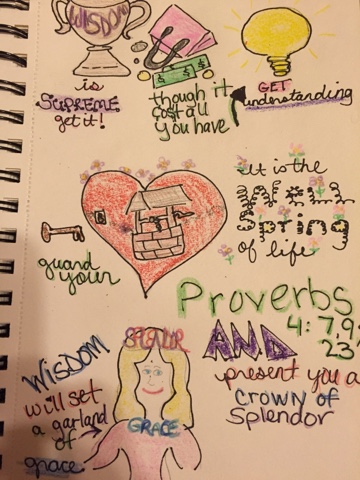 WISDOM
is
SUPREME
get it!
though it
cost all
you have
GET
understanding
guard
your
It is the
Well
Spring
of life
Proverbs
4: 7, 9,
23
WISDOM
will set
a garland
of
grace
SPLENDOR
GRACE
AND
present you a
CROWN of
Splendor